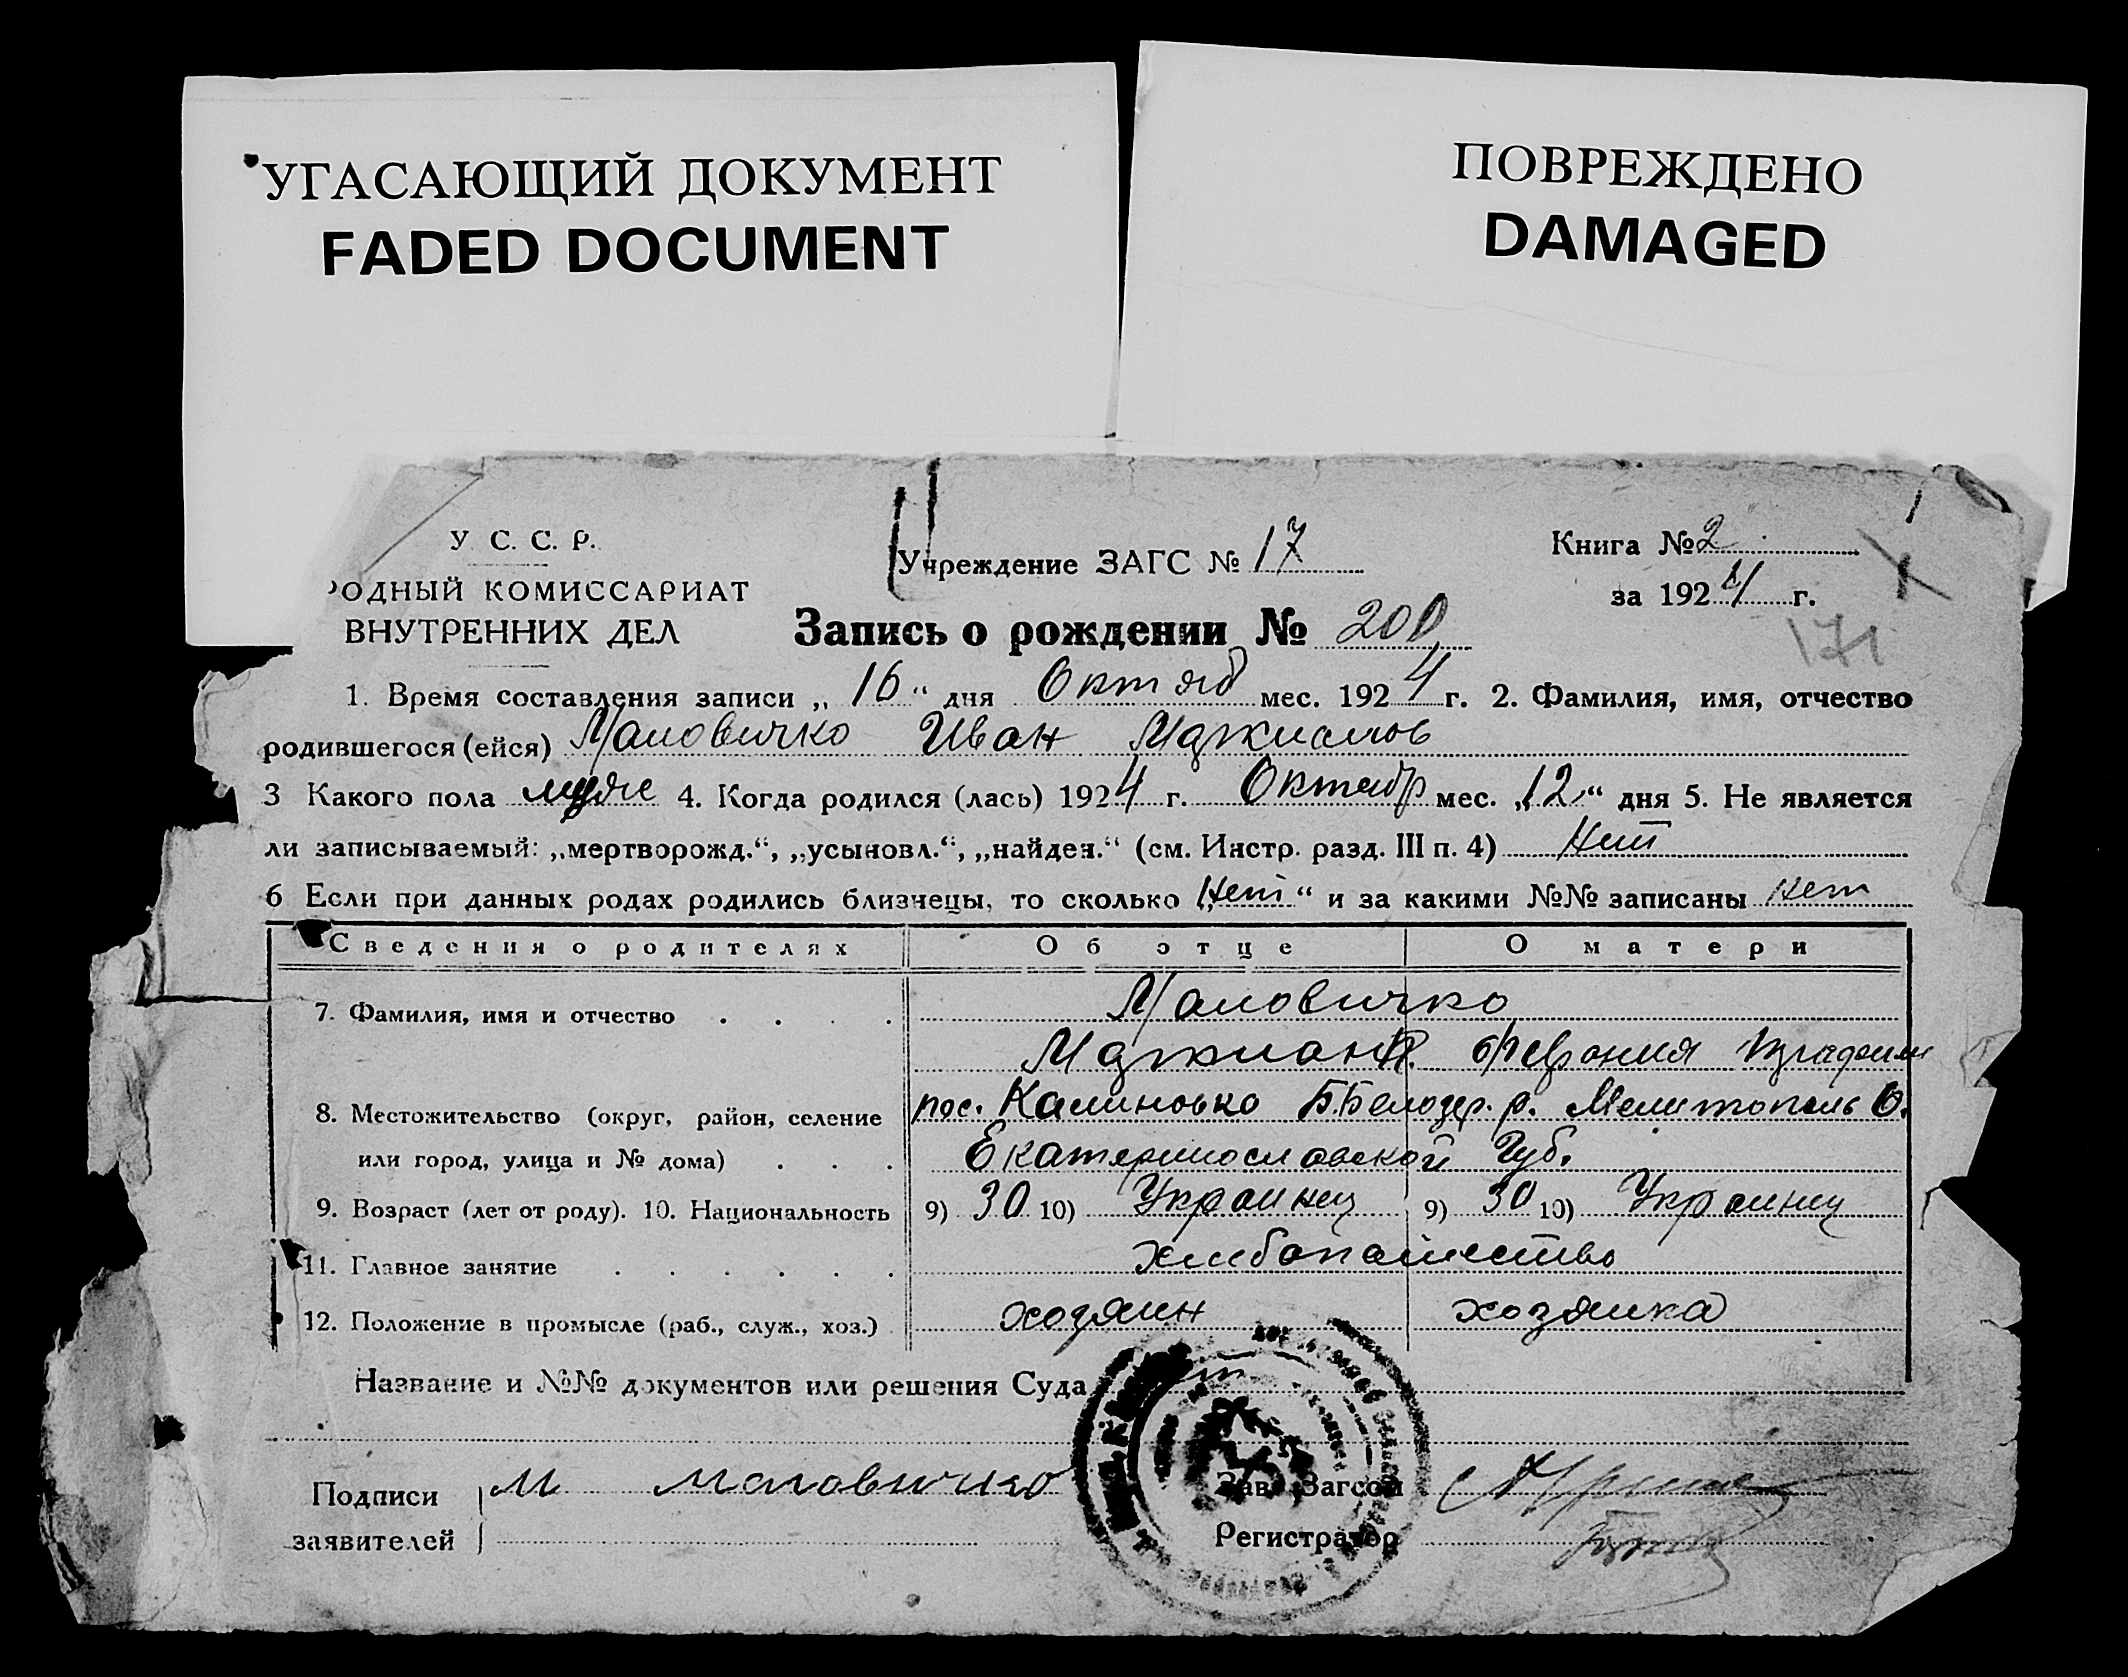 УГАСАЮЩИЙ ДОКУМЕНТ
FADED DOCUMENT
ПОВРЕЖДЕНО
DAMAGED
У. С. С. Р.
РОДНЫЙ КОМИССАРИАТ
ВНУТРЕННИХ ДЕЛ
Учреждение ЗАГС № 17
Книга № 2
за 1924 г.
171
Запись о рождении № 200
1. Время составления записи „ 16 “ дня Октяб мес. 1924 г. 2. Фамилия, имя, отчество
родившегося (ейся) Маловичко Иван
3 Какого пола муж 4. Когда родился (лась) 1924 г. Октябр мес. „12“ дня 5. Не является
ли записываемый: „мертворожд.“, „усыновл.“, „найден.“ (см. Инстр. разд. III п. 4) Нет
6 Если при данных родах родились близнецы, то сколько „Нет“ и за какими №№ записаны Нет
Сведения о родителях Об отце О матери
7. Фамилия, имя и отчество Маловичко
8. Местожительство (округ, район, селение пос. Калиновко Б.Белозер. р. Мелитополь О.
или город, улица и № дома) Екатеринославской Губ.
9. Возраст (лет от роду). 10. Национальность 9) 30 10) Украинец 9) 30 10) Украинец
11. Главное занятие хлебопашество
12. Положение в промысле (раб., служ., хоз.) хозяин хозяйка
Название и №№ документов или решения Суда
Подписи М Маловичко Зав. Загсом
заявителей Регистратор